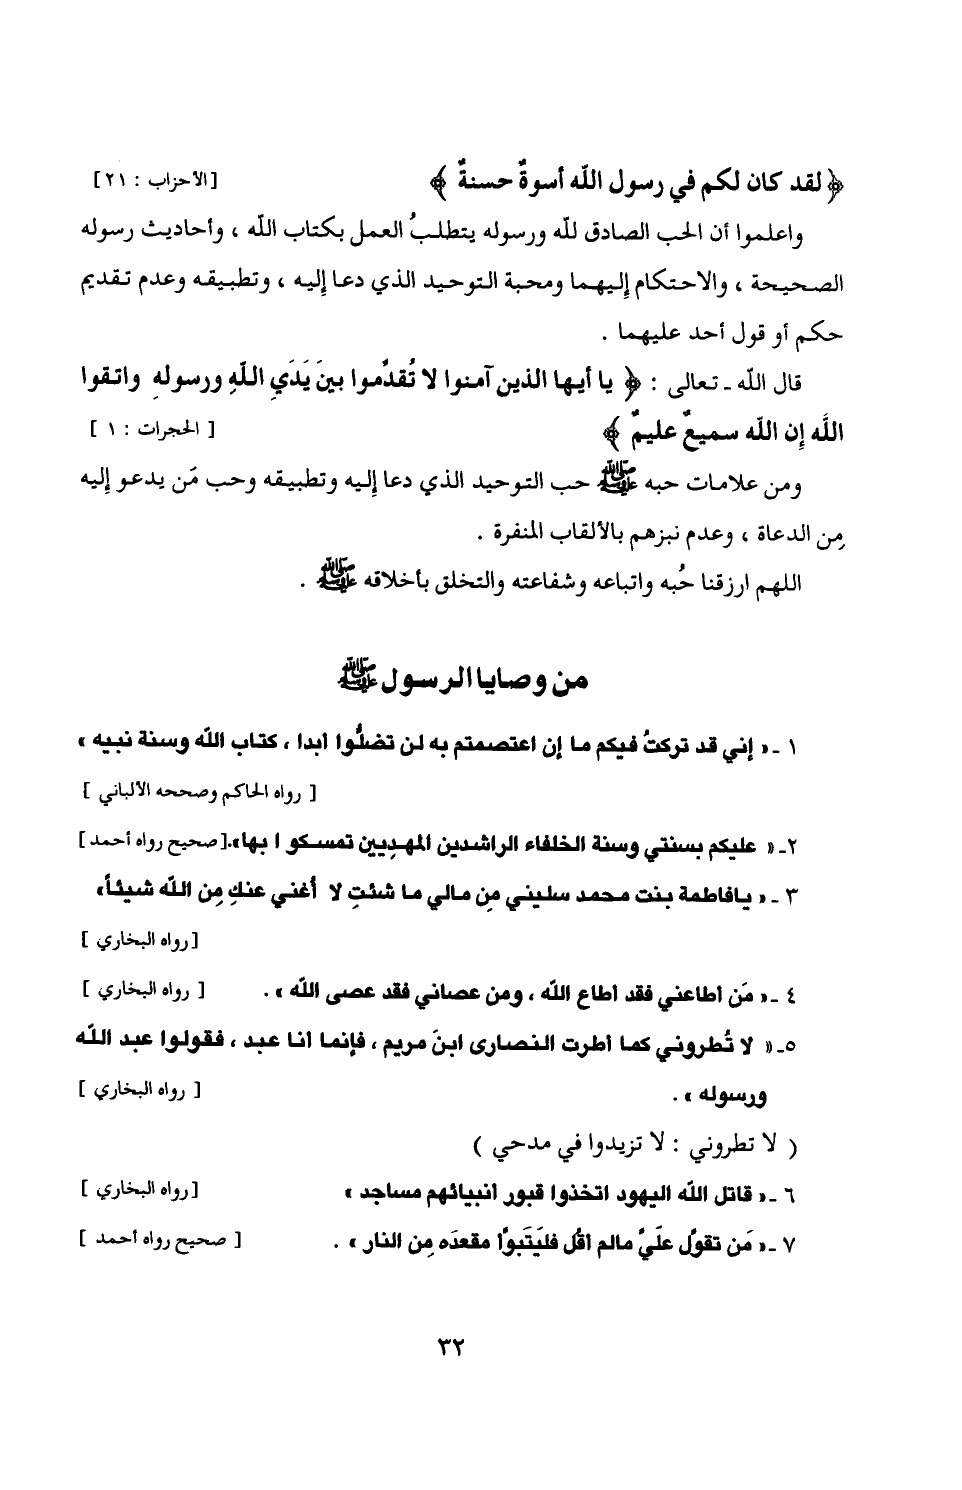 ﴿ لقد كان لكم في رسول الله أسوةٌ حسنةٌ ﴾ [الأحزاب : ٢١]
واعلموا أن الحب الصادق لله ورسوله يتطلبُ العمل بكتاب الله ، وأحاديث رسوله
الصحيحة ، والاحتكام إليهما ومحبة التوحيد الذي دعا إليه ، وتطبيقه وعدم تقديم
حكم أو قول أحد عليهما .
قال الله ـ تعالى : ﴿ يا أيها الذين آمنوا لا تُقدِّموا بينَ يَدَيِ اللّهِ ورسولهِ واتقوا
اللَّه إن الله سميعٌ عليمٌ ﴾ [ الحجرات : ١ ]
ومن علامات حبه ﷺ حب التوحيد الذي دعا إليه وتطبيقه وحب مَن يدعو إليه
مِن الدعاة ، وعدم نبزهم بالألقاب المنفرة .
اللهم ارزقنا حُبه واتباعه وشفاعته والتخلق بأخلاقه ﷺ .
من وصايا الرسول ﷺ
١ ـ « إني قد تركتُ فيكم ما إن اعتصمتم به لن تضلُّوا أبدا ، كتاب الله وسنة نبيه »
[ رواه الحاكم وصححه الألباني ]
٢ـ « عليكم بسنتي وسنة الخلفاء الراشدين المهدِيين تمسكو ا بها».[ صحيح رواه أحمد ]
٣ ـ « يافاطمة بنت محمد سليني مِن مالي ما شئتِ لا أُغني عنكِ مِن الله شيئاً»
[رواه البخاري ]
٤ ـ « مَن أطاعني فقد أطاع الله ، ومن عصاني فقد عصى الله » . [ رواه البخاري ]
٥ـ « لا تُطروني كما أطرت النصارى ابنَ مريم ، فإنما أنا عبد ، فقولوا عبد الله
ورسوله » . [ رواه البخاري ]
( لا تطروني : لا تزيدوا في مدحي )
٦ ـ « قاتل الله اليهود اتخذوا قبور أنبيائهم مساجد » [رواه البخاري ]
٧ ـ « مَن تقوَّل علَيَّ مالم أقُل فليَتَبوَّأ مقعدَه مِن النار » . [ صحيح رواه أحمد ]
٣٢